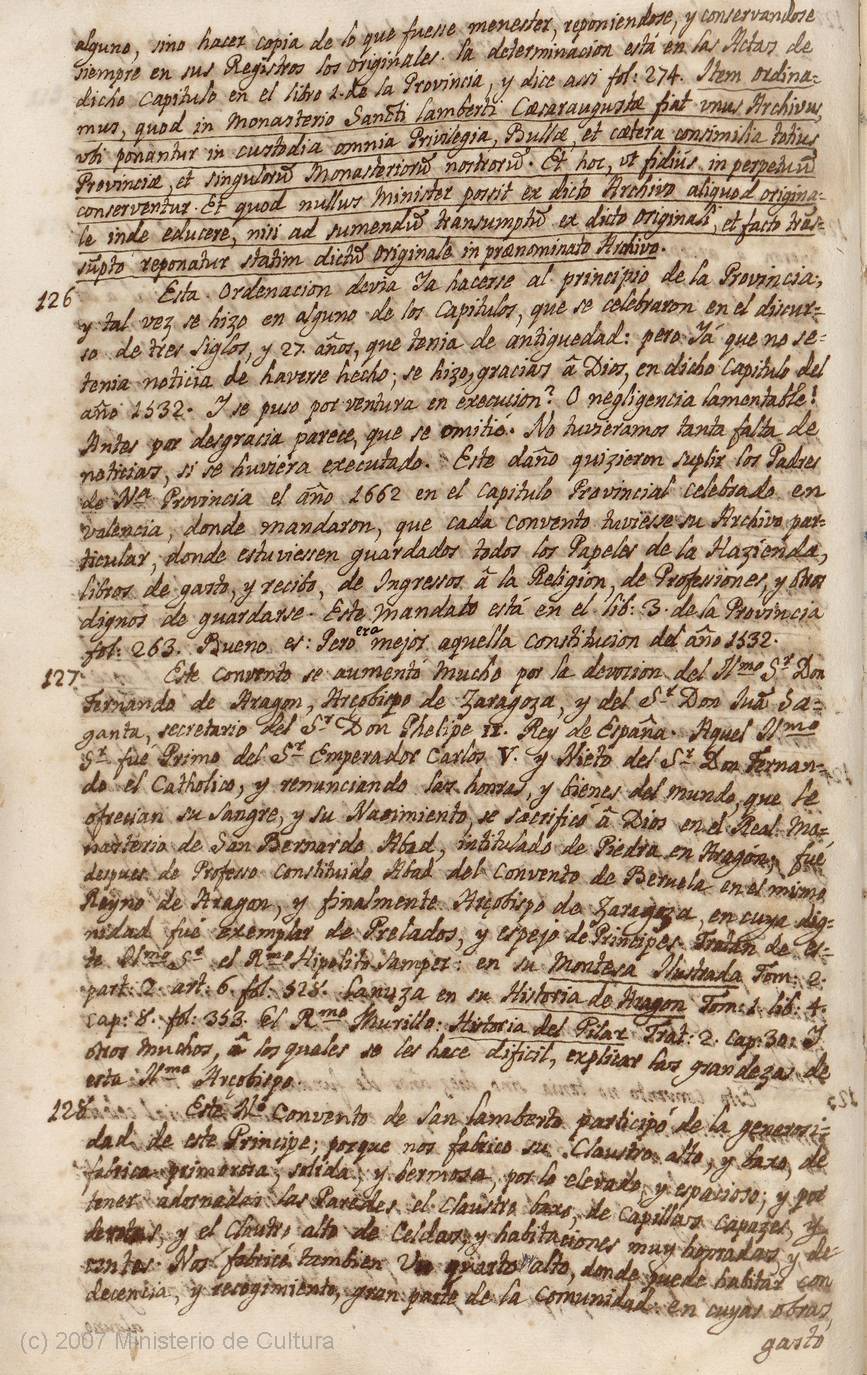 alguno, sino hacer copia de lo que fuesse menester, reponiendose, y conservandose
siempre en sus Registros los originales. la determinacion està en las Actas de
dicho Capitulo en el libro 1. de la Provincia, y dice assi fol: 274. Item ordina=
mus, quod in Monasterio Sancti Lamberti Cæsaraugustæ fiat vnus Archivus,
vbi ponantur in custodia omnia Privilegia, Bullæ, et cætera consimilia totius
Provinciæ, et singulorũ Monasteriorũ nostrorũ. Et hoc, vt fidiùs in perpetuũ
conserventur. Et quod nullus Minister possit ex dicto Archivo aliquod origina=
le inde educere, nisi ad sumendũ transumptũ ex dicto originali, et facto trãs=
sũpto reponatur statim dictũ originale in prænominato Archivo.
126 Esta Ordenacion devia Ia hacerse al principio de la Provincia,
y tal vez se hizo en alguno de los Capitulos, que se celebraron en el discur=
so de tres siglos, y 27. años, que tenia de antiguedad: pero Iá que no se=
tenia noticia de haverse hecho; se hizo, gracias â Dios, en dicho Capitulo del
año 1532. I se puso por ventura en execucion? O negligencia lamentable!
Antes por desgracia parece, que se omitiô. No tuvieramos tanta falta de
noticias, si se huviera executado. Este daño quizieron suplir los Padres
de Nª Provincia el año 1662 en el Capitulo Provincial celebrado en
Valencia, donde mandaron, que cada convento tuviesse su Archivo par=
ticular, donde estuviessen guardados todos los Papeles de la Hazienda,
libros de gasto, y recibo, de Ingressos â la Religiòn, de Professiones, y otros
dignos de guardarse. Este mandato está en el lib: 3. de la Provincia
fol: 263. Bueno es: Pero era mejor aquella constitucion del año 1532.
127 Este convento se aumentò mucho por la devozion del Ilmo Sr Don
Fernando de Aragon, Arçobispo de Zaragoza, y del Sr Don Juã Ga=
ganta, secretario del Sr Don Phelipe II. Rey de España. Aquel Ilmo
Sr fué Primo del Sr Emperador Carlos V. y Nieto del Sr Don Fernan=
do el Catholico, y renunciando las honras, y bienes del mundo, que le
ofrecian su sangre, y su Nacimiento, se sacrificó â Dios en el Real Mo=
nasterio de San Bernardo Abad, intitulado de Piedra en Aragòn; fué
despues de Professo constituido Abad del Convento de Beruela en el mismo
Reyno de Aragon, y finalmente Arçobispo de Zaragoza, en cuya dig=
nidad fué exemplar de Prelados, y espejo de Principes. Tratan de es=
te Ilmo Sr el Rmo Hipolito Samper: en su Montesa Ilustrada Tom: 2.
part: 2. art: 6. fol: 528. Lanuza en su Historia de Aragon Tom: 1. lib: 4.
cap: 8. fol: 353. El Rmo Murillo: Historia del Pilar Trat: 2. cap: 30. I
otros muchos, â los quales se les hace dificil, explicar las grandezas de
este Ilmo Arçobispo.
128 Este No Convento de San Lamberto participó de la generosi=
dad de este Principe; porque nos fabricò su Claustro alto, y baxo, de
fabrica primorosa, solida, y hermosa, por lo elevado, y espacioso; y por
tener adornadas las Paredes el claustro baxo, de capillas capazes, y
devotas, y el Claustro alto de Celdas, y habitaciones muy honradas, y de=
centes. Nos fabricó tambien Vn quarto alto, donde puede habitar con
decencia, y recogimiento, gran parte de la Comunidad: en cuyas obras,
gastó
(c) 2007 Ministerio de Cultura